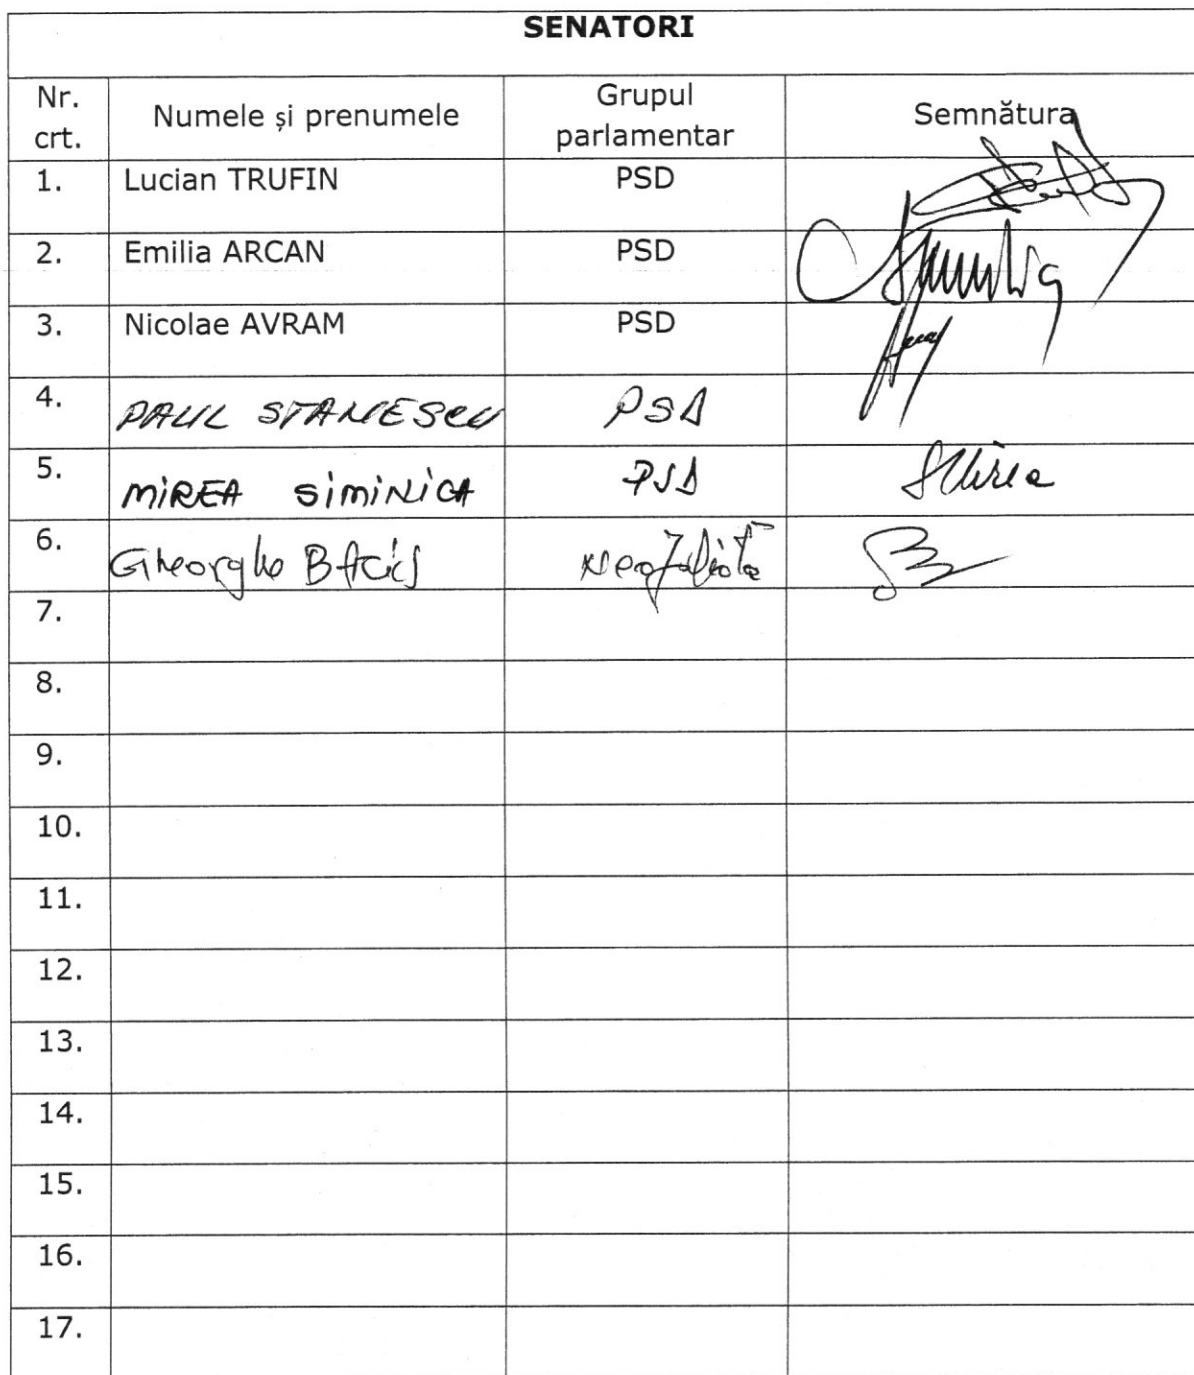 SENATORI
Nr. crt. Numele și prenumele Grupul parlamentar Semnătura
1. Lucian TRUFIN PSD
2. Emilia ARCAN PSD
3. Nicolae AVRAM PSD
4. PAUL STANESCU PSD
5. MIREA SIMINICA PSD SMirea
6. Gheorghe
7.
8.
9.
10.
11.
12.
13.
14.
15.
16.
17.